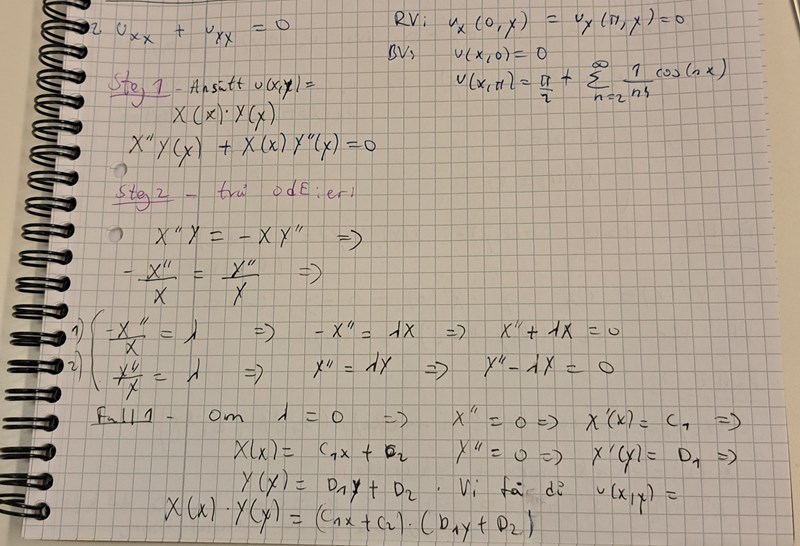 2 u_xx + u_xx = 0 RV: u_x(0,y) = u_x(π,y) = 0
BV: u(x,0) = 0
u(x,π) = π/2 + ∑_{n=2}^{∞} 1/n⁴ cos(nx)
Steg 1 - Ansätt u(x,y) =
X(x)·Y(y)
X''Y(y) + X(x)Y''(y) = 0
Steg 2 - två ODE:er:
X''Y = -XY'' =>
-X''/X = Y''/Y =>
1) -X''/X = λ => -X'' = λX => X'' + λX = 0
2) Y''/Y = λ => Y'' = λY => Y'' - λY = 0
Fall 1 - om λ = 0 => X'' = 0 => X'(x) = C₁ =>
X(x) = C₁x + C₂ Y'' = 0 => Y'(y) = D₁ =>
Y(y) = D₁y + D₂. Vi får då u(x,y) =
X(x)·Y(y) = (C₁x + C₂)·(D₁y + D₂)